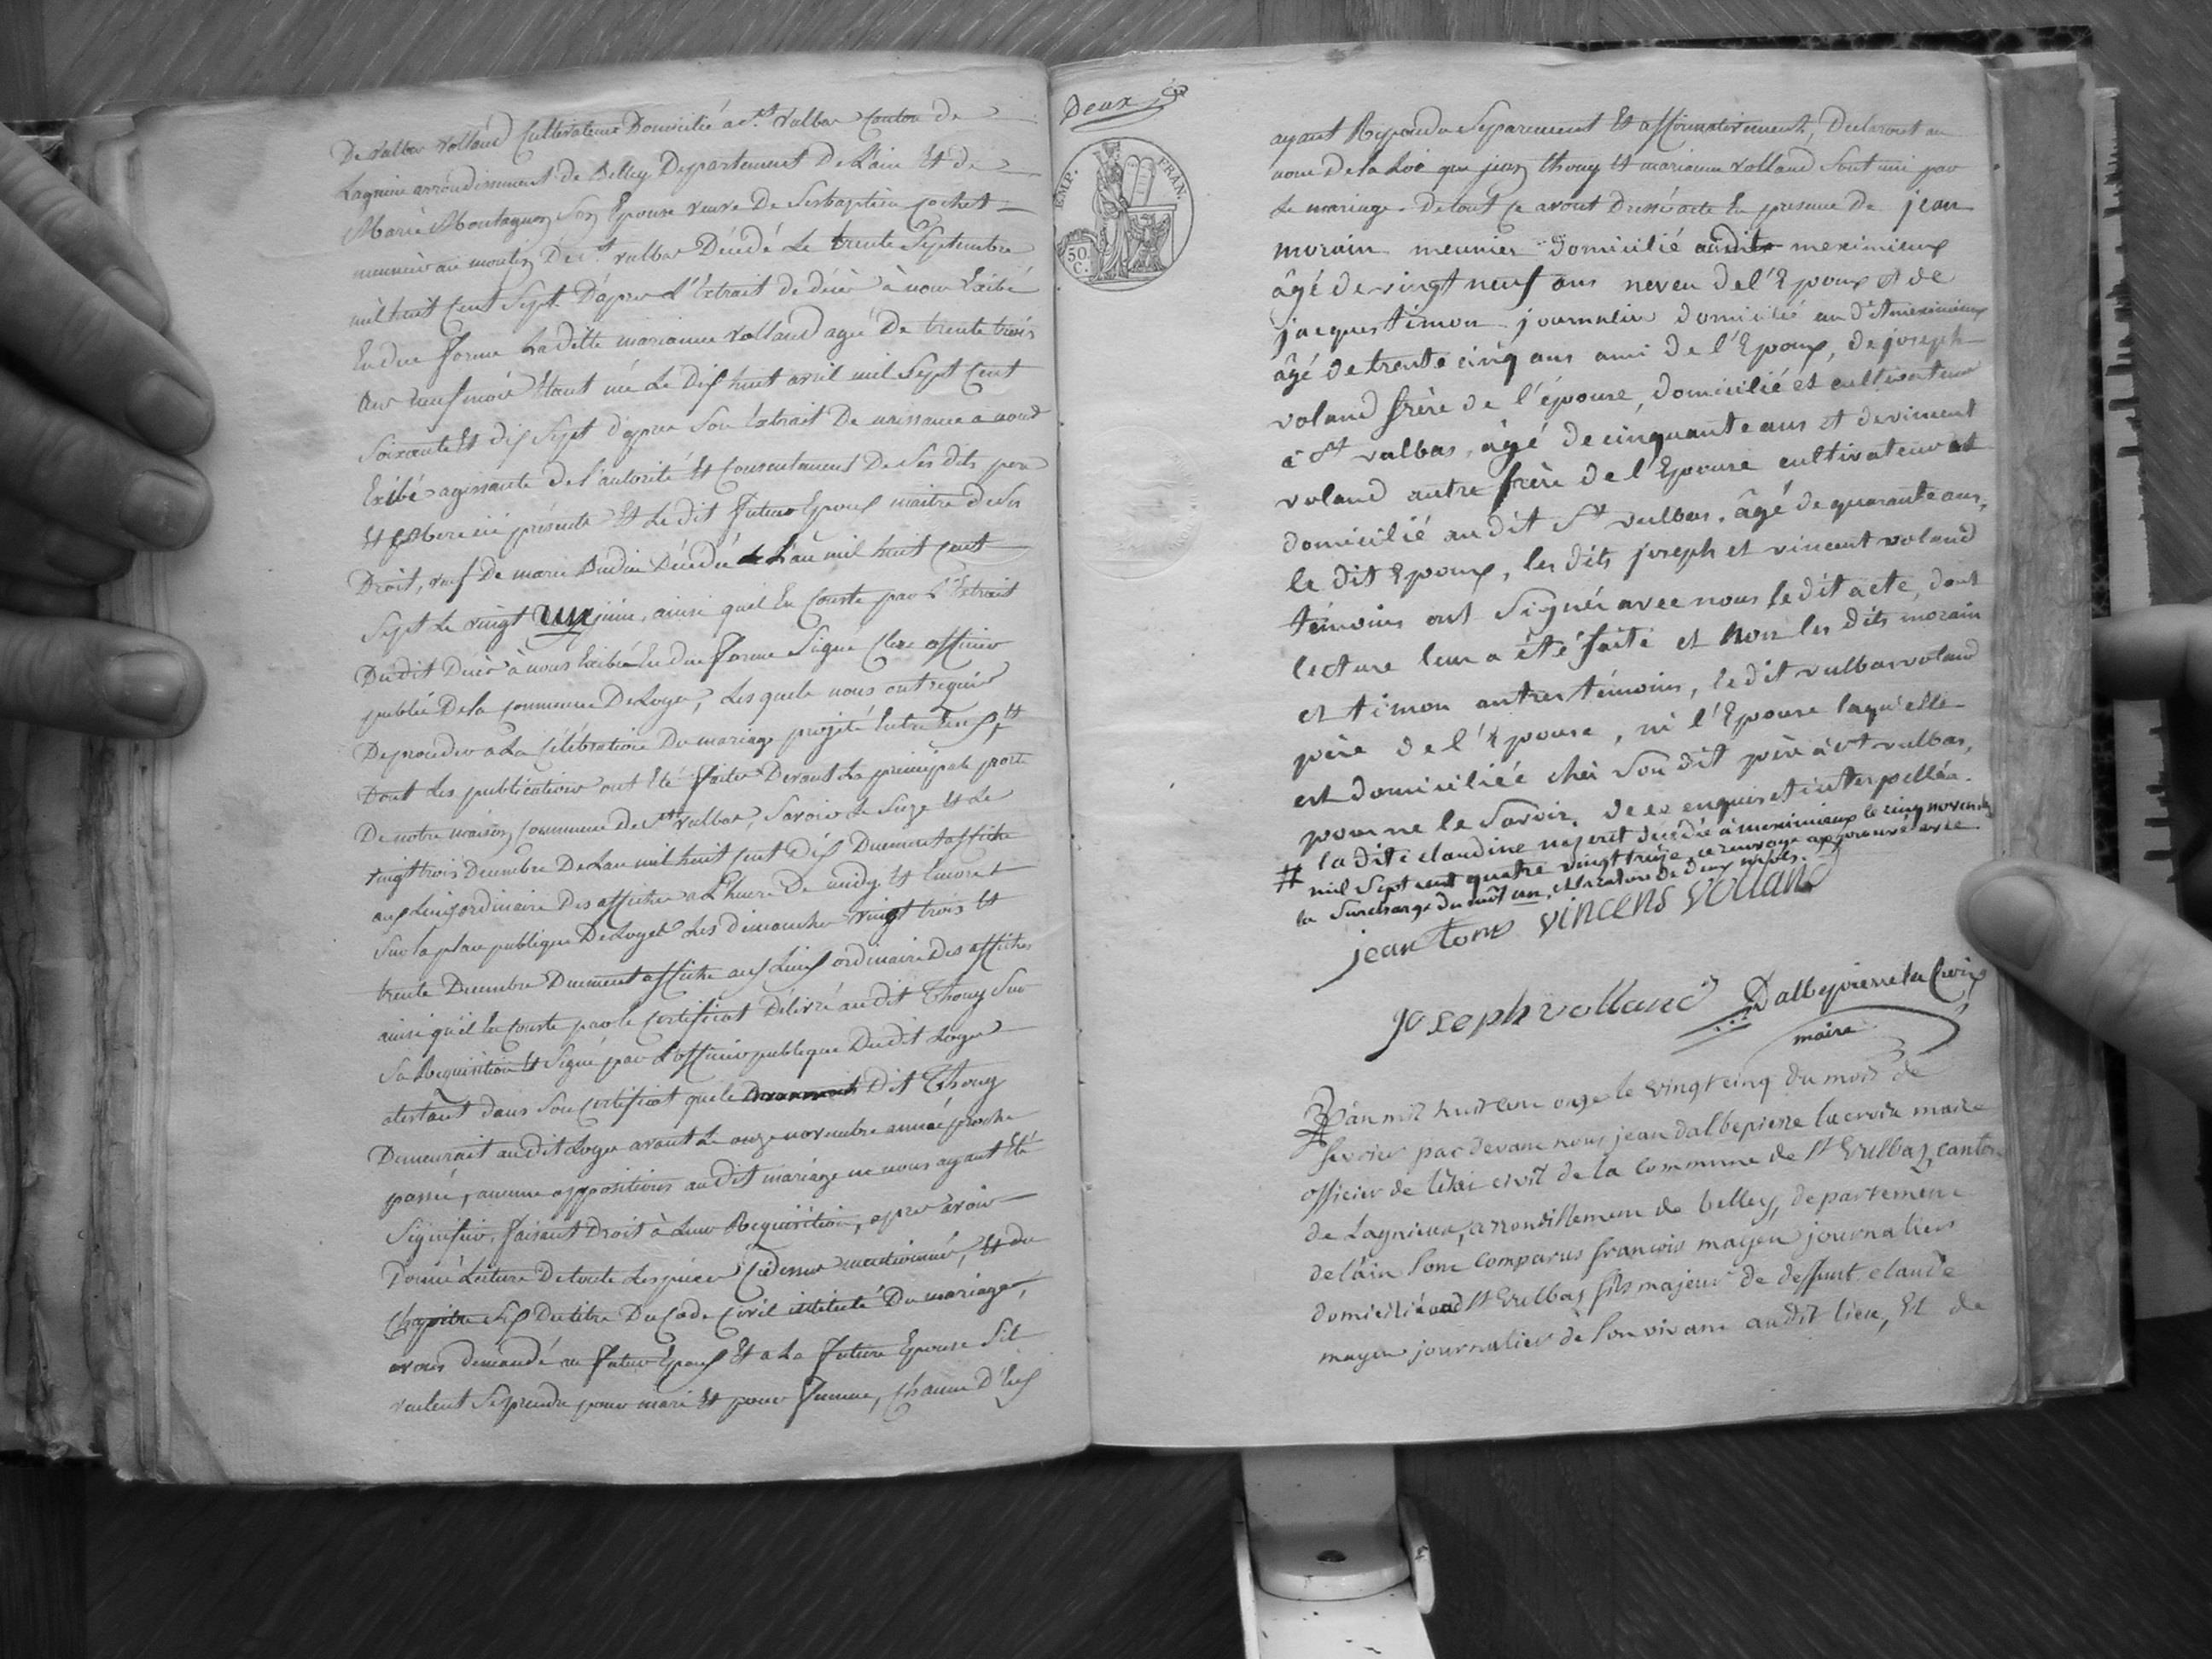 De Valbas Volland Cultivateur Domicilié a St. Vulbas Canton de
Lagnieu arrondissement de Belley Departement De Lain Et de
Marie Montagnon Son Epouse veuve De Jeanbaptiste Cochet
meunier au moulin De St. Vulbas Décédé Le trente Septembre
mil huit Cent Sept D'apres L'Extrait de décès à nous Exibé
En due forme La ditte marianne Volland agée De trente trois
ans neuf mois Etant née Le Dix huit avril mil Sept Cent
Soixante Et dix Sept d'apres Son Extrait De naissance a nous
Exibé agissante de L'autorité Et Consentement De Ses dits pere
Et mere ici présents Et Le dit futur Epoux maitre de Ses
Droit, veuf De marie Budin Décédée L'an mil huit Cent
Sept Le vingt un juin, ainsi quil En Conste par L'Extrait
Du dit Décès à nous Exibé En due forme Signé Clerc officier
public De la Commune De Loyes, Les quels nous ont requis
De proceder a La Célébration Du mariage projeté Entre Eux, #
Dont Les publications ont Eté faites Devant La principale porte
De notre maison Commune De St Vulbas, Savoir Le Seize Et Le
vingt trois Décembre De Lan mil huit Cent Dix Duement affiché
aux Lieux ordinaire Des affiches a L'heure De midy Et Encore
Sur la place publique De Loyes Les dimanches vingt trois Et
trente Decembre Duement affiché aux Lieux ordinaire Des affiches
ainsi qu'il En Conste par le Certificat Délivré au dit Thouy Sur
Sa Requisition Et Signé par L'officier publique Du dit Loyes
atestant dans Son Certificat que le dit Thouy
Demeurait au dit Loyes avant Le onze novembre année proche
passée, aucune oppositions au dit mariage ne nous ayant Eté
Signifier, faisant Droit à Leur Requisition, apres avoir
Donné Lecture De toute Les pieces Cidessus mentionnées, Et du
Chapitre Six Du titre Du Code Civil intitulé Du mariage,
avons demandé au futur Epoux Et a La future Epouse Sil
veulent Se prendre pour mari Et pour femme, Chacun D'Eux
Deux
EMP. FRAN.
50 C.
ayant Repondu Separement Et affirmativement, Declarons au
nom De la Loi que jean thouy Et marianne Volland Sont uni par
Le mariage. De tout Ce avons Dressé acte En presence De jean
morain meunier domicilié audit meximieux
âgé de vingt neuf ans neveu de l'Epoux et de
jacques timon journalier domicilié au dit meximieux
âgé de trente cinq ans ami de l'Epoux, de joseph
voland frère de l'épouse, domicilié et cultivateur
à St vulbas, âgé de cinquante ans et de vincent
voland autre frère de l'Epouse cultivateur et
domicilié au dit St vulbas, âgé de quarante ans,
le dit Epoux, les dits joseph et vincent voland
témoins ont Signés avec nous le dit acte, dont
lecture leur a été faite et non les dits morain
et timon autres témoins, le dit vulbas voland
père de l'Epouse, ni l'Epouse laqu'elle
est domiciliée chés Son dit père à St vulbas,
pour ne le Savoir, de ce enquis et interpellés.
# la dite claudine était décédée à meximieux le cinq novembre
mil Sept cent quatre vingt treize. ce renvoye approuvé avec
la Surcharge du mot un, et la rature de deux mots.
jean tous vincens volland
Joseph volland Dalbepierre la Croix
maire
L'an mil huit cent onze le vingt cinq du mois de
fevrier par devant nous jean dalbepierre lacroix maire
officier de l'état civil de la commune de St Vulbas, canton
de Lagnieux, arrondissement de belley, departement
de l'ain sont comparus francois mayeu journalier
domicilié audit St Vulbas, fils majeur de deffunt claude
mayeu journalier de son vivant audit lieu, Et de